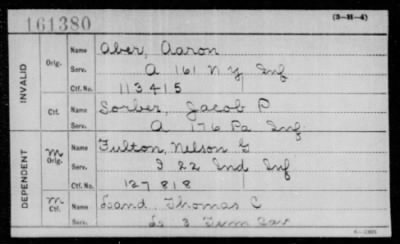 161380
(3-M-4)
INVALID
Orig. Name Aber, Aaron
Serv. A 161 N Y Inf
Ctf. No. 113415
Ctf. Name Sorber, Jacob P
Serv. A 176 Pa Inf
DEPENDENT
M Orig. Name Fulton, Nelson G
Serv. I 22 Ind Inf
Ctf. No. 127818
M Ctf. Name Land, Thomas C
Serv. 3 Tenn Cav